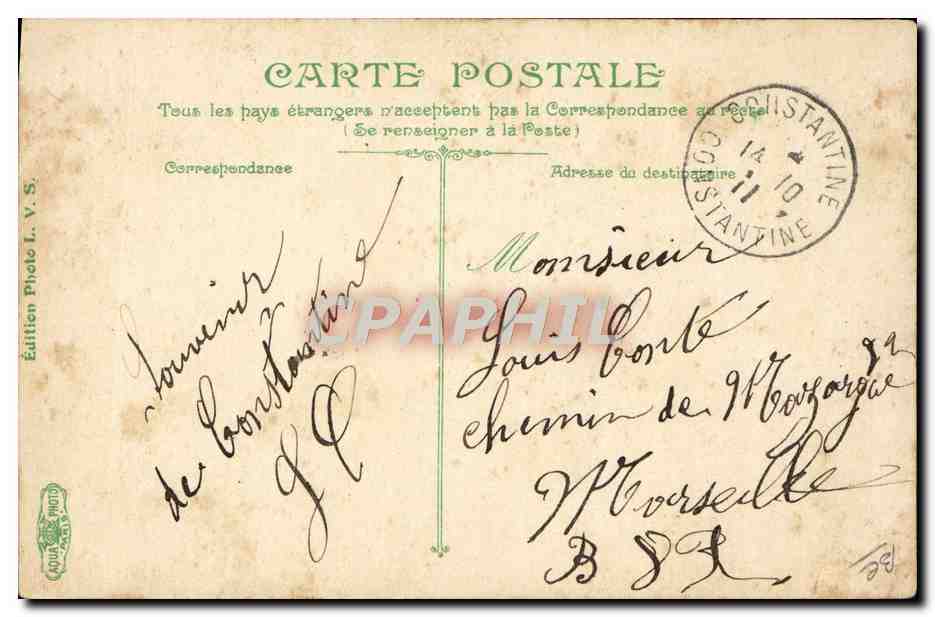 CARTE POSTALE
Tous les pays étrangers n'acceptent pas la Correspondance au recto
(Se renseigner à la Poste)
Correspondance
Adresse du destinataire
CONSTANTINE
14 4
11 10
CONSTANTINE
Édition Photo L. V. S.
Souvenir
de Constantine
Monsieur
Louis Conte
chemin de Mazargue
Marseille
B d R
CPAPHIL
AQUA PHOTO
PARIS